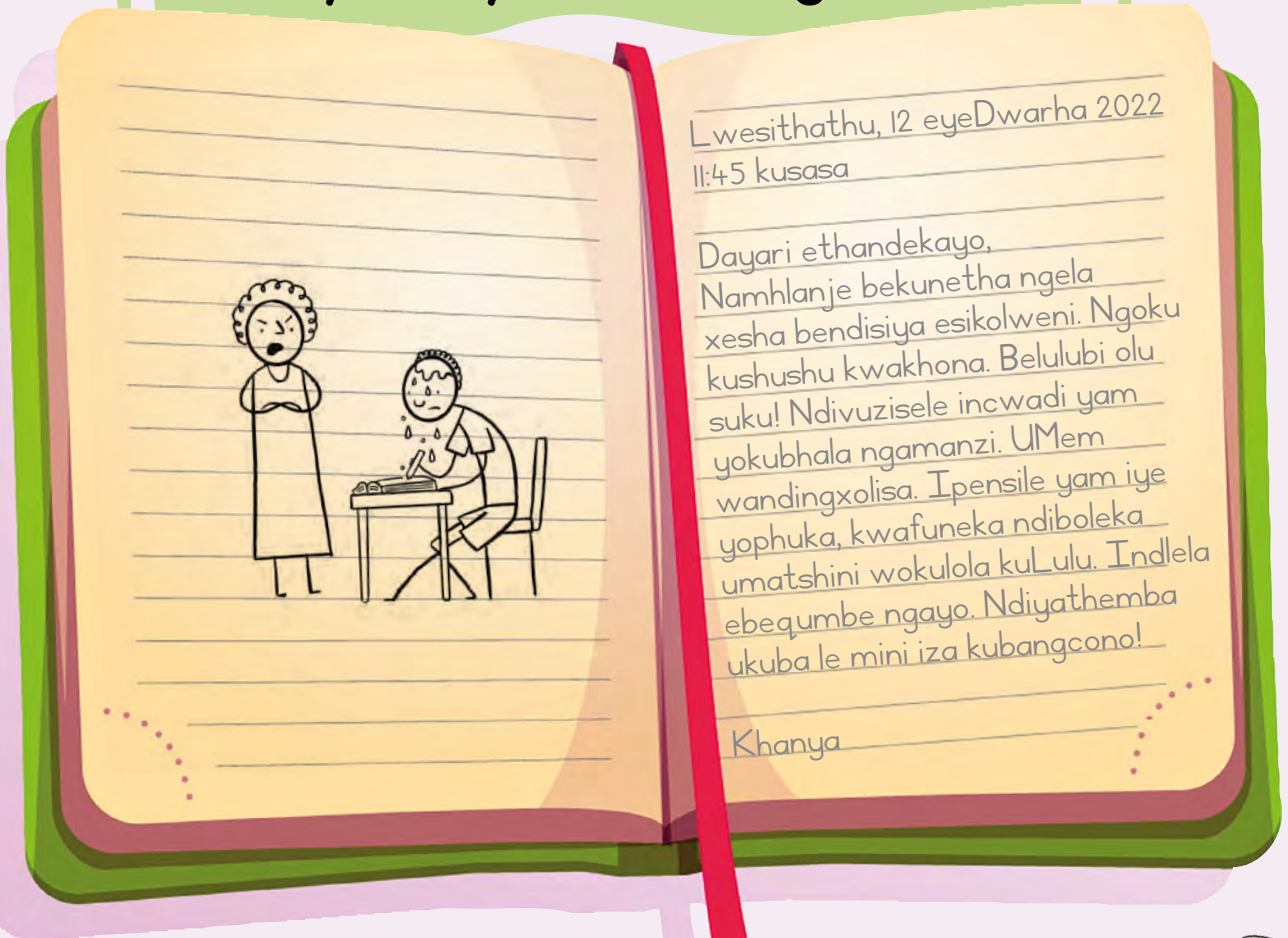 Lwesithathu, 12 eyeDwarha 2022
11:45 kusasa
Dayari ethandekayo,
Namhlanje bekunetha ngela
xesha bendisiya esikolweni. Ngoku
kushushu kwakhona. Belulubi olu
suku! Ndivuzisele incwadi yam
yokubhala ngamanzi. UMem
wandingxolisa. Ipensile yam iye
yophuka, kwafuneka ndiboleka
umatshini wokulola kuLulu. Indlela
ebequmbe ngayo. Ndiyathemba
ukuba le mini iza kubangcono!
Khanya